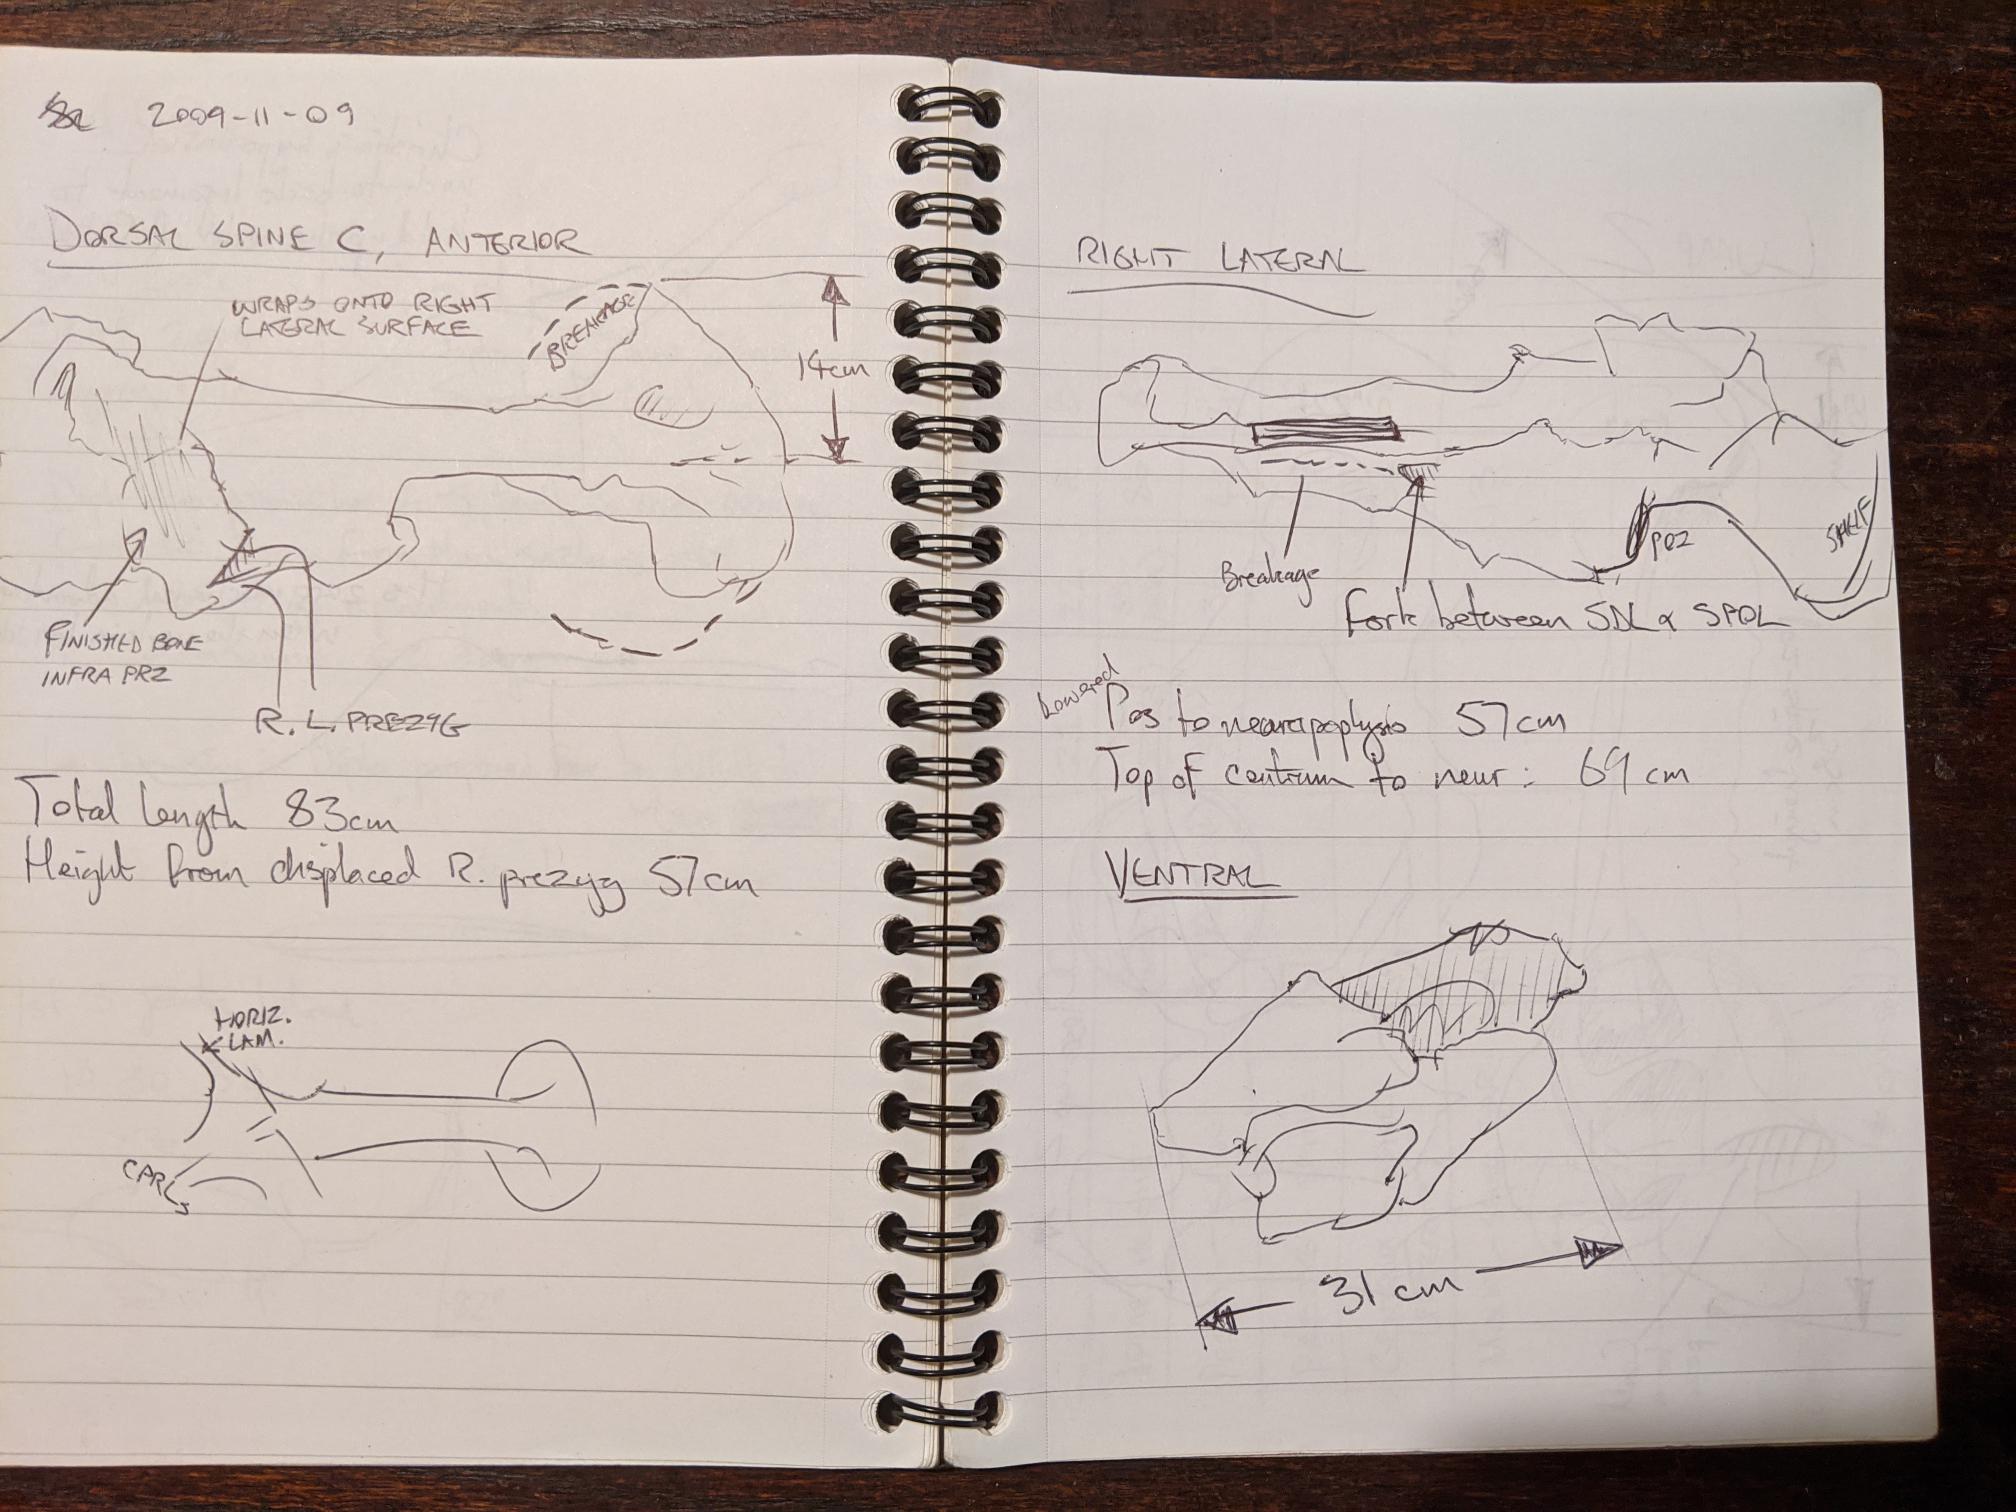 2009-11-09
DORSAL SPINE C, ANTERIOR
WRAPS ONTO RIGHT
LATERAL SURFACE
BREAKAGE
14cm
FINISHED BONE
INFRA PRZ
R. L. PREZYG
Total length 83cm
Height from displaced R. prezyg 57cm
HORIZ.
LAM.
CPRLs
RIGHT LATERAL
SHELF
POZ
Breakage
Fork between SDL & SPOL
Lowered
Pos to neurapophysis 57cm
Top of centrum to neur: 69 cm
VENTRAL
31 cm